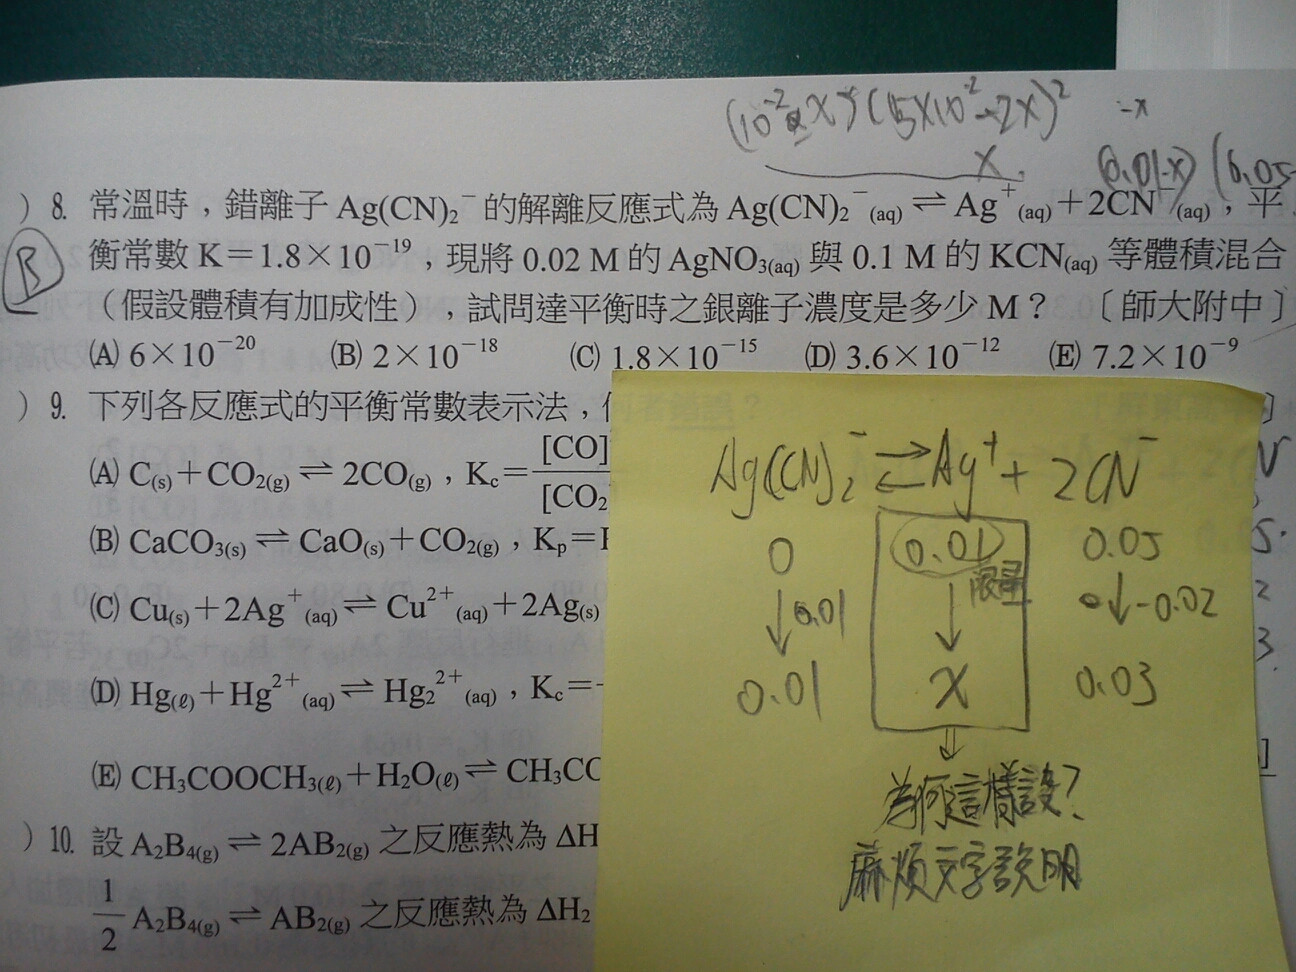 (10⁻² - x)(5×10⁻² - 2x)²
x
-x
(0.01-x) (0.05-
) 8. 常溫時，錯離子 Ag(CN)₂⁻ 的解離反應式為 Ag(CN)₂⁻(aq) ⇌ Ag⁺(aq)+2CN⁻(aq)，平
B
衡常數 K＝1.8×10⁻¹⁹，現將 0.02 M 的 AgNO₃(aq) 與 0.1 M 的 KCN(aq) 等體積混合
（假設體積有加成性），試問達平衡時之銀離子濃度是多少 M？ 〔師大附中〕
(A) 6×10⁻²⁰ (B) 2×10⁻¹⁸ (C) 1.8×10⁻¹⁵ (D) 3.6×10⁻¹² (E) 7.2×10⁻⁹
) 9. 下列各反應式的平衡常數表示法，
(A) C(s)+CO₂(g) ⇌ 2CO(g)，Kc＝[CO]/[CO₂
(B) CaCO₃(s) ⇌ CaO(s)+CO₂(g)，Kp＝
(C) Cu(s)+2Ag⁺(aq) ⇌ Cu²⁺(aq)+2Ag(s)
(D) Hg(ℓ)+Hg²⁺(aq) ⇌ Hg₂²⁺(aq)，Kc＝
(E) CH₃COOCH₃(ℓ)+H₂O(ℓ) ⇌ CH₃CC
) 10. 設 A₂B₄(g) ⇌ 2AB₂(g) 之反應熱為 ΔH
1/2 A₂B₄(g) ⇌ AB₂(g) 之反應熱為 ΔH₂
Ag(CN)₂⁻ ⇌ Ag⁺ + 2CN⁻
0 0.01 0.05
↓0.01 ↓限量 ↓-0.02
0.01 x 0.03
⇓
為何這樣設?
麻煩文字說明